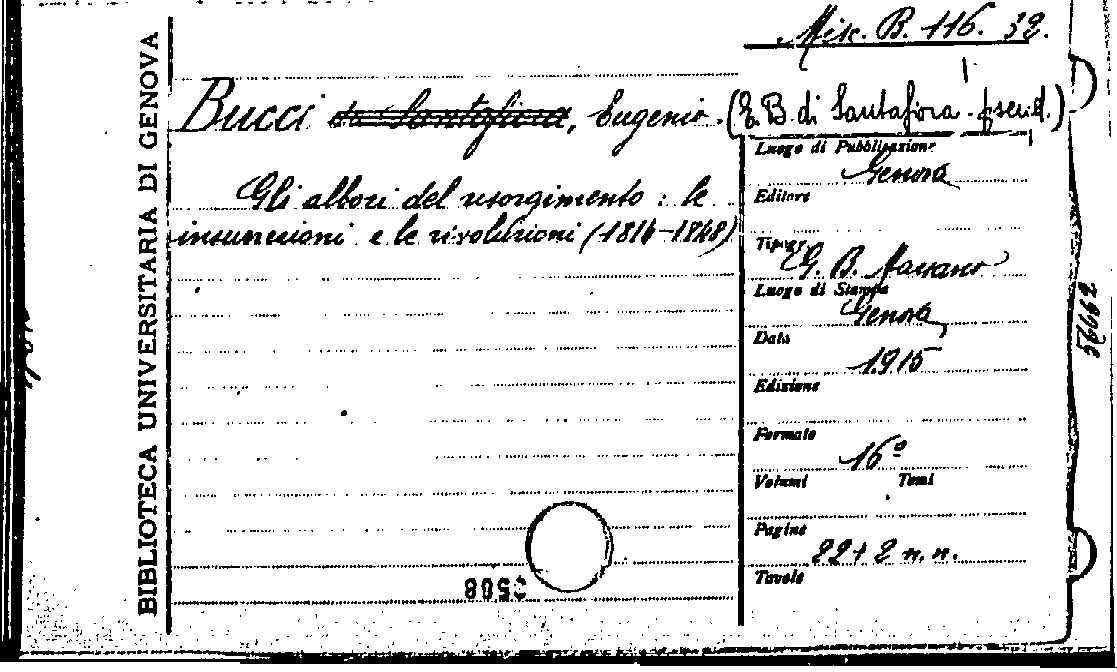 Misc. B. 116. 32.
BIBLIOTECA UNIVERSITARIA DI GENOVA
Bucci da Santafiora, Eugenio. (E. B. di Santafiora - pseud.)
Gli albori del risorgimento : le
insurrezioni e le rivoluzioni (1814-1848)
Luogo di Pubblicazione
Genova
Editore
Tipogr.
G. B. Marsano
Luogo di Stampa
Genova
Data
1915
Edizione
Formato
16º
Volumi Tomi
Pagine
22+2 n. n.
Tavole